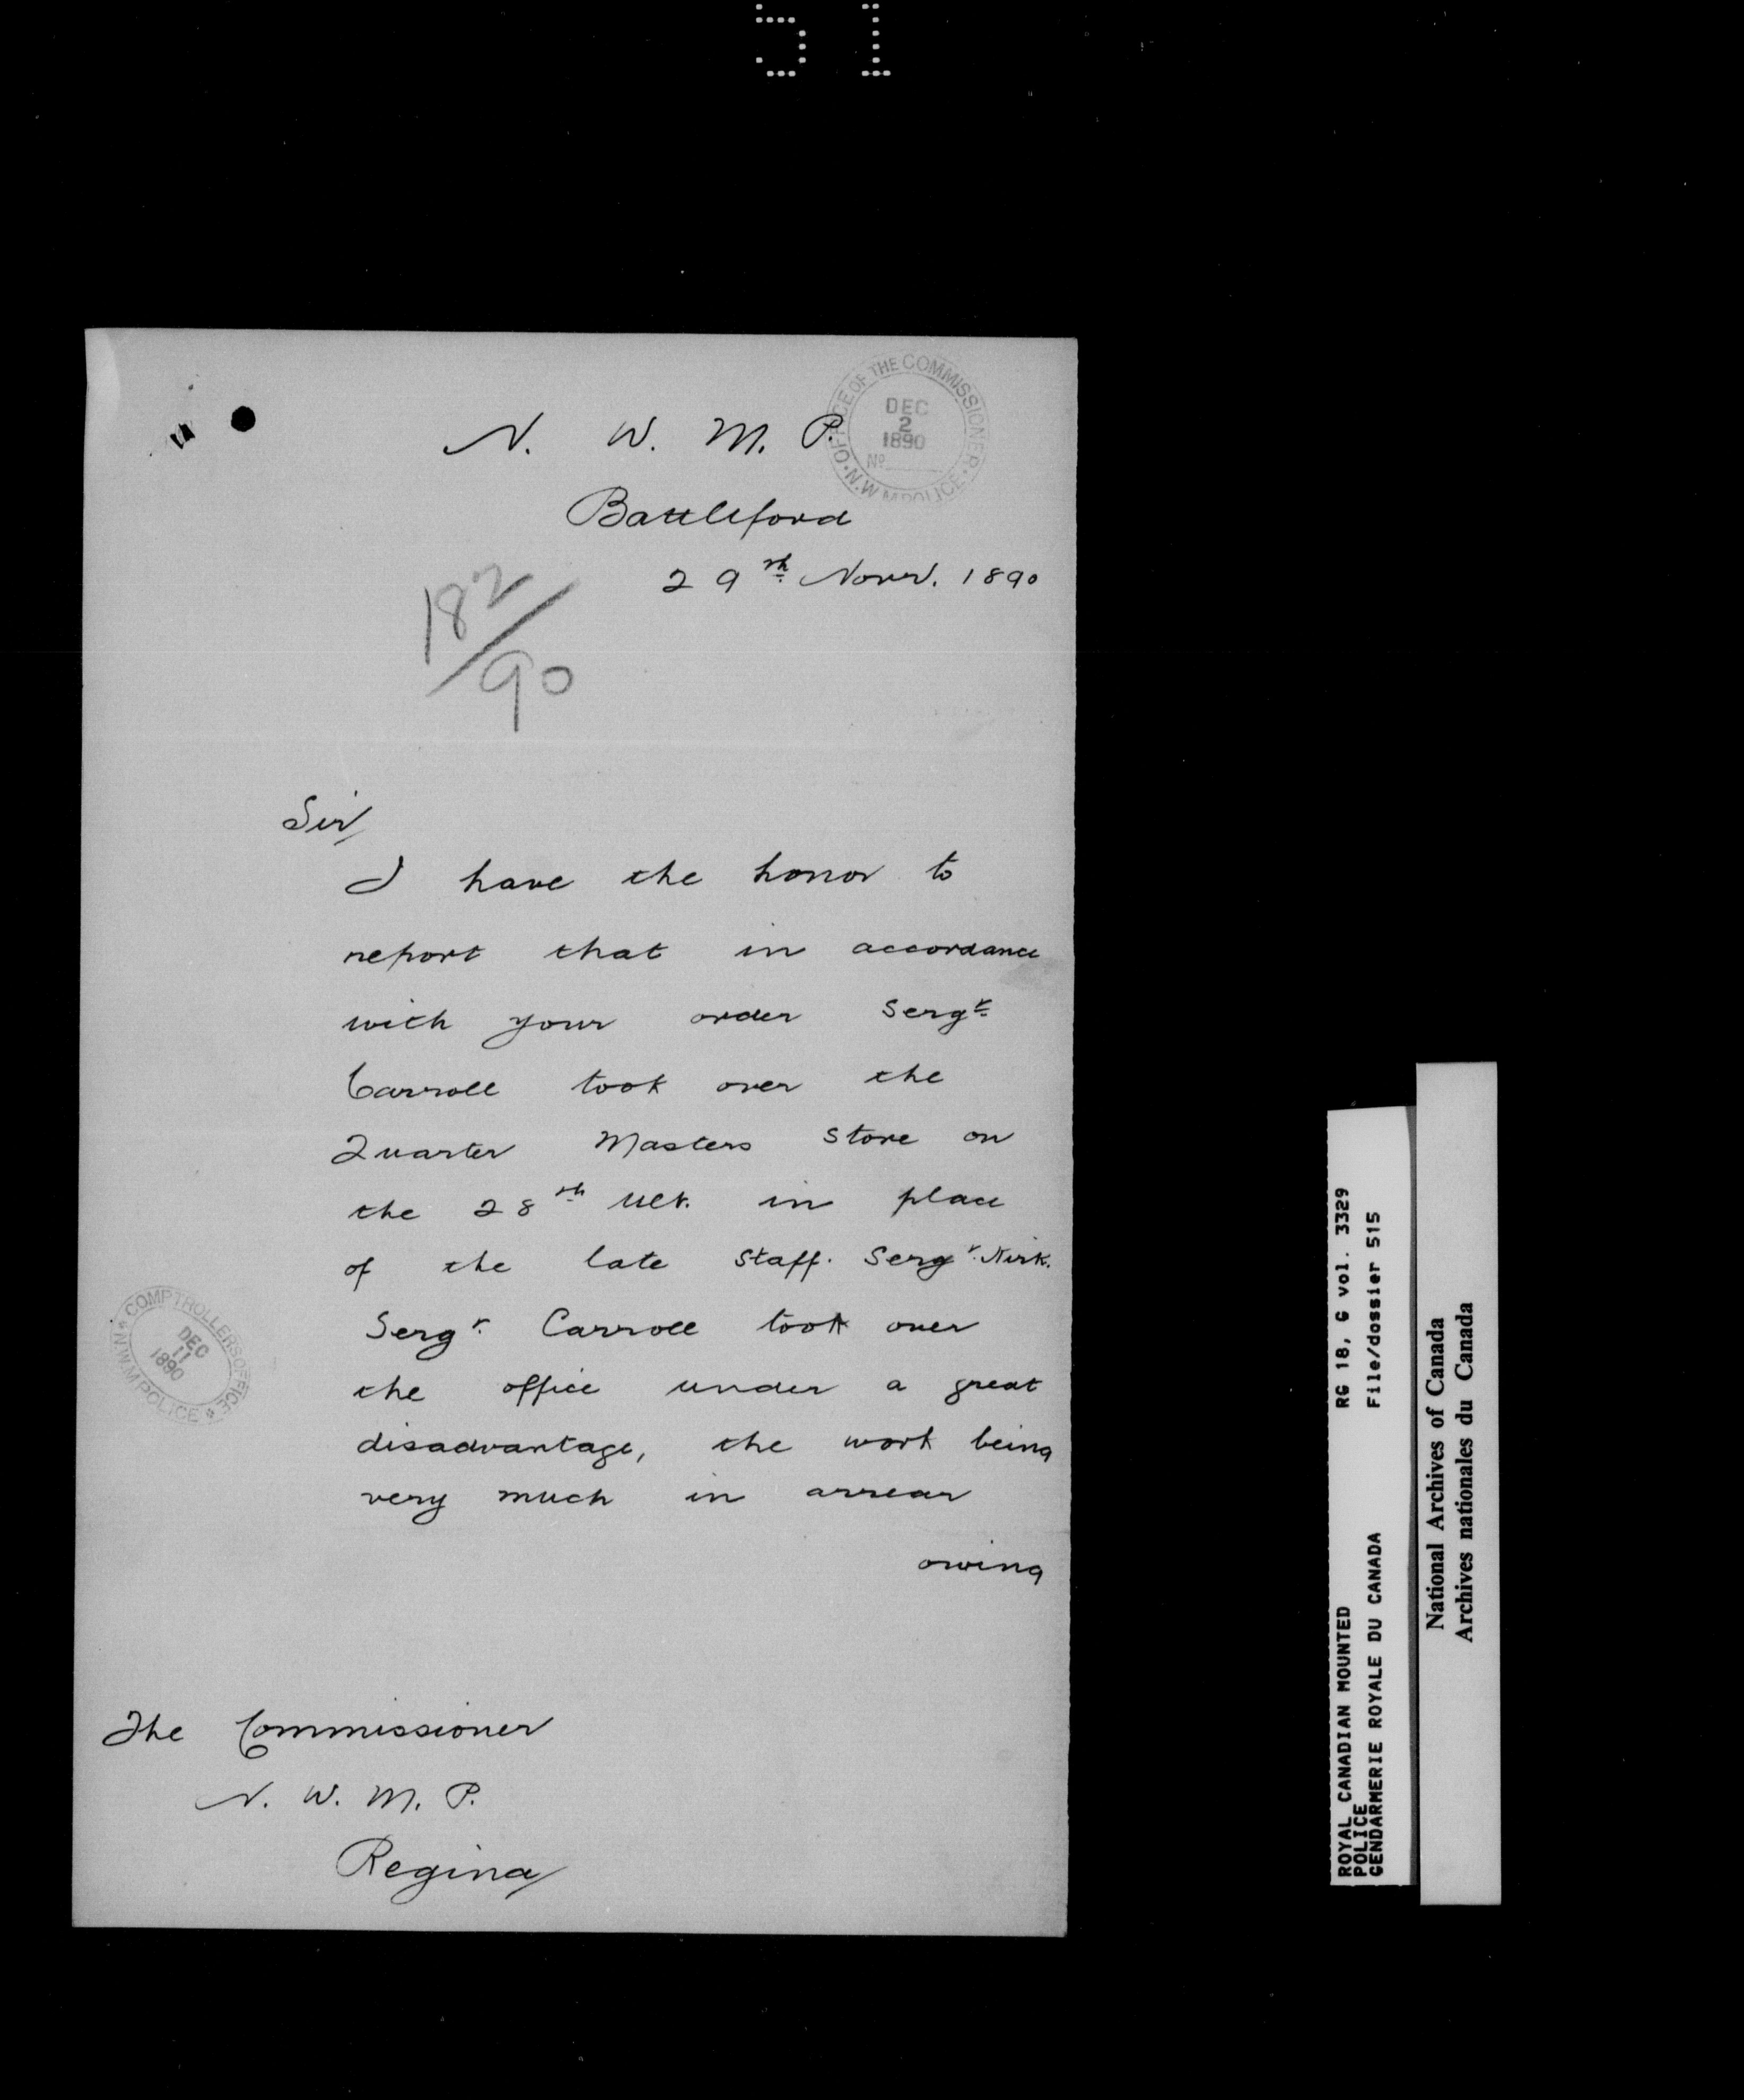 51
OFFICE OF THE COMMISSIONER
DEC
2
1890
No
N.W.M POLICE
N. W. M. P.
Battleford
29th Novr. 1890
182/90
Sir/
I have the honor to
report that in accordance
with your order Sergt.
Carroll took over the
Quarter Masters Store on
the 28th Ult. in place
of the late Staff. Sergt. Kirk.
Sergt. Carroll took over
the office under a great
disadvantage, the work being
very much in arrear
owing
COMPTROLLERS OFFICE
DEC
11
1890
N.W.M POLICE
The Commissioner
N. W. M. P.
Regina
ROYAL CANADIAN MOUNTED
POLICE
GENDARMERIE ROYALE DU CANADA
RG 18, G vol. 3329
File/dossier 515
National Archives of Canada
Archives nationales du Canada